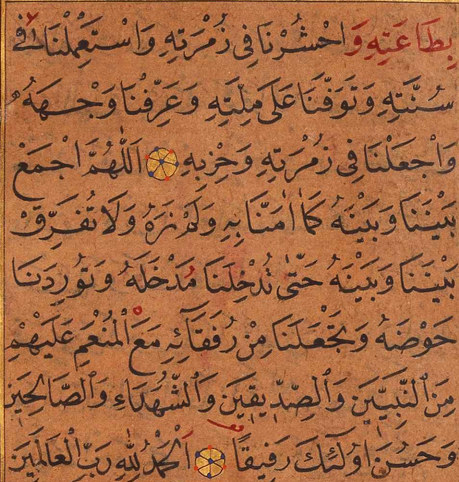 بِطَاعَتِهِ وَاحْشُرْنَا فِى زُمْرَتِهِ وَاسْتَعْمِلْنَا فِى
سُنَّتِهِ وَتَوَفَّنَا عَلَى مِلَّتِهِ وَعَرِّفْنَا وَجْهَهُ
وَاجْعَلْنَا فِى زُمْرَتِهِ وَحِزْبِهِ اَللّٰهُمَّ اجْمَعْ
بَيْنَنَا وَبَيْنَهُ كَمَا اٰمَنَّا بِهِ وَلَمْ نَرَهُ وَلَا تُفَرِّقْ
بَيْنَنَا وَبَيْنَهُ حَتّٰى تُدْخِلَنَا مُدْخَلَهُ وَتُورِدَنَا
حَوْضَهُ وَتَجْعَلَنَا مِنْ رُفَقَآئِهِ مَعَ الْمُنْعَمِ عَلَيْهِمْ
مِنَ النَّبِيّٖنَ وَالصِّدّٖيقٖينَ وَالشُّهَدَاءِ وَالصَّالِحٖينَ
وَحَسُنَ اُولٰئِكَ رَفٖيقًا اَلْحَمْدُ لِلّٰهِ رَبِّ الْعَالَمٖينَ